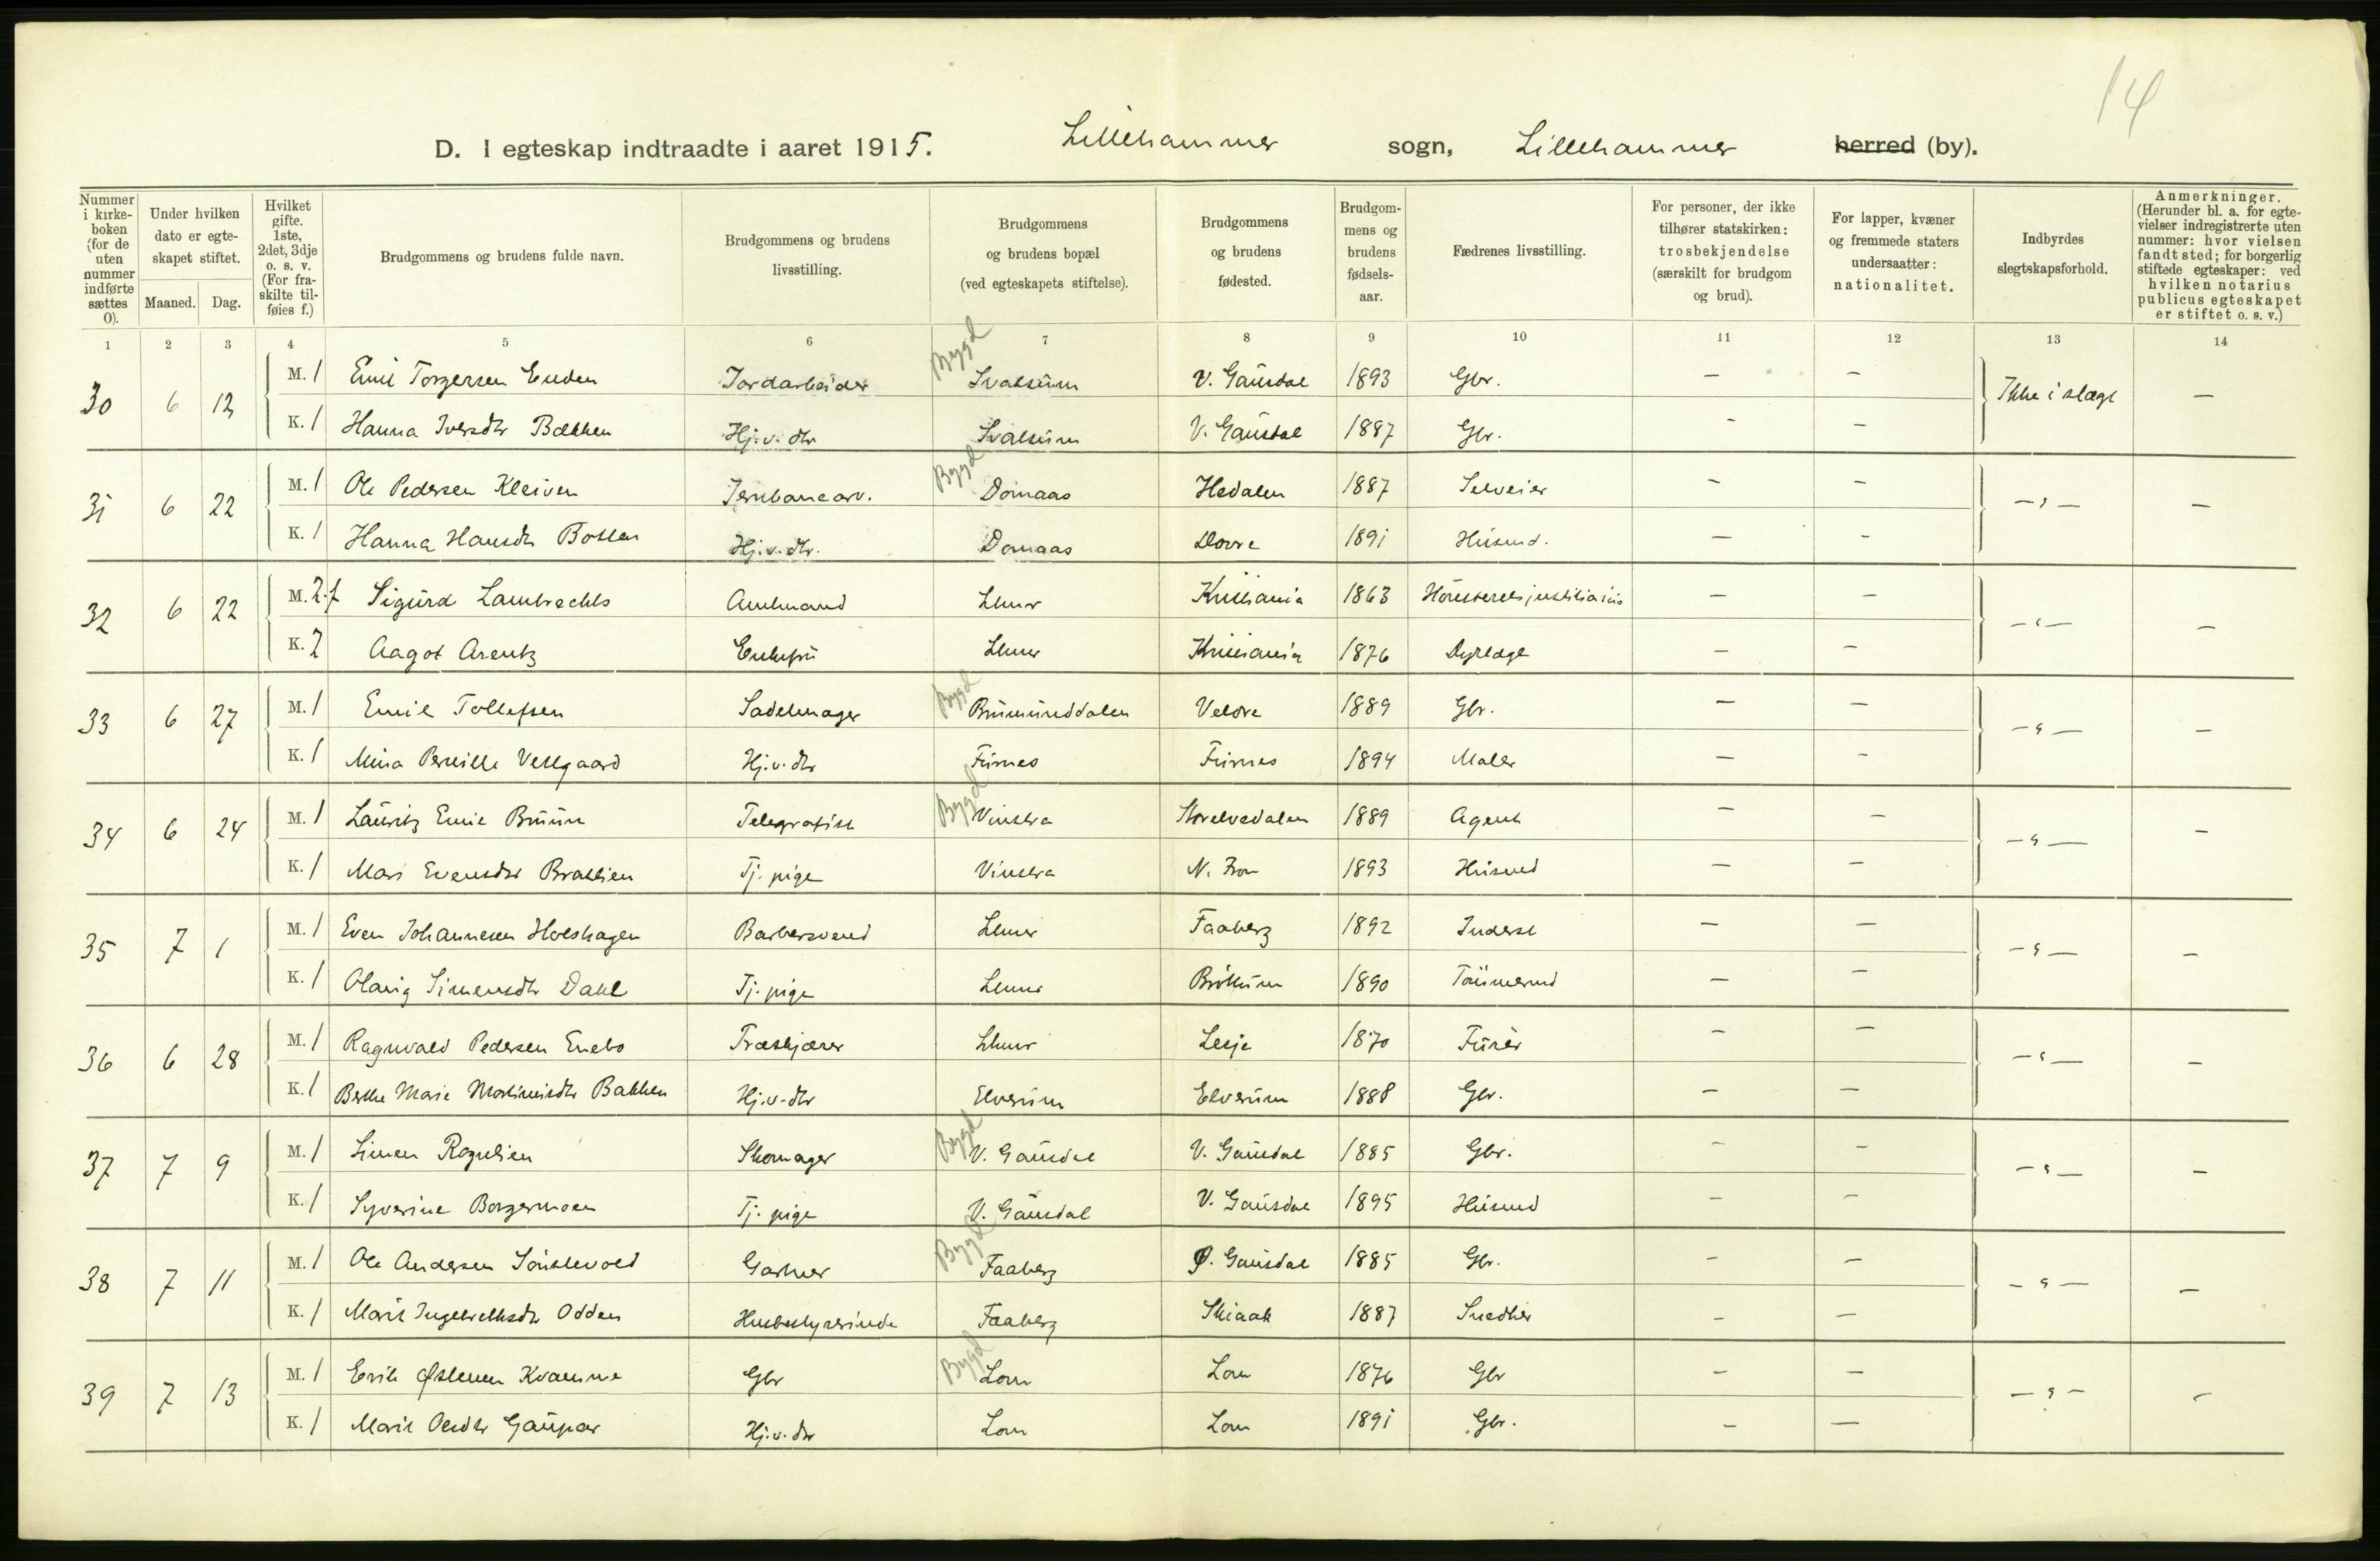 14
D. I egteskap indtraadte i aaret 1915. Lillehammer sogn, Lillehammer herred (by).
Nummer i kirkeboken (for de uten nummer indførte sættes 0).
Under hvilken dato er egteskapet stiftet.
Maaned. Dag.
Hvilket gifte. 1ste, 2det, 3dje o. s. v. (For fraskilte tilføies f.)
Brudgommens og brudens fulde navn.
Brudgommens og brudens livsstilling.
Brudgommens og brudens bopæl (ved egteskapets stiftelse).
Brudgommens og brudens fødested.
Brudgommens og brudens fødselsaar.
Fædrenes livsstilling.
For personer, der ikke tilhører statskirken: trosbekjendelse (særskilt for brudgom og brud).
For lapper, kvæner og fremmede staters undersaatter: nationalitet.
Indbyrdes slegtskapsforhold.
Anmerkninger. (Herunder bl. a. for egtevielser indregistrerte uten nummer: hvor vielsen fandt sted; for borgerlig stiftede egteskaper: ved hvilken notarius publicus egteskapet er stiftet o. s. v.)
1 2 3 4 5 6 7 8 9 10 11 12 13 14
30 6 12 M. 1 Emil Torgersen Enden Jordarbeider Bygd Svatsum V. Gausdal 1893 Gbr. — — Ikke i slægt —
K. 1 Hanna Iversdtr Bakken Hj.v. dtr Svatsum V. Gausdal 1887 Gbr. - —
31 6 22 M. 1 Ole Pedersen Kleiven Jernbanearb. Bygd Domaas Hedalen 1887 Selveier - — —"— —
K. 1 Hanna Hansdtr Botten Hj.v.dtr. Domaas Dovre 1891 Husmd. — -
32 6 22 M. 2.f Sigurd Lambrechts Amtmand Lhmr Kristiania 1863 Høiesteretsjustitiarius — — —"— —
K. 2 Aagot Arentz Enkefru Lhmr Kristiania 1876 Dyrlæge — —
33 6 27 M. 1 Emil Tollefsen Sadelmager Bygd Brumunddalen Veldre 1889 Gbr. — — —"— —
K. 1 Mina Pernille Veslgaard Hj.v. dtr Furnes Furnes 1894 Maler — -
34 6 24 M. 1 Lauritz Emil Bruun Telegrafist Bygd Vinstra Storelvedalen 1889 Agent — — —"— —
K. 1 Mari Evensdtr Bratlien Tj. pige Vinstra N. Fron 1893 Husmd — —
35 7 1 M. 1 Even Johannesen Holshagen Barbersvend Lhmr Faaberg 1892 Inderst — — —"— —
K. 1 Olavig Simensdtr Dahl Tj. pige Lhmr Brøttum 1890 Tømmermd — —
36 6 28 M. 1 Ragnvald Pedersen Enebo Træskjærer Lhmr Lesje 1870 Furér — — —"— —
K. 1 Berthe Marie Martinusdtr Bakken Hj.v. dtr Elverum Elverum 1888 Gbr. — —
37 7 9 M. 1 Simen Rognlien Skomager Bygd V. Gausdal V. Gausdal 1885 Gbr. - — —"— —
K. 1 Syverine Borgermoen Tj. pige V. Gausdal V. Gausdal 1895 Husmd — —
38 7 11 M. 1 Ole Andersen Sønstevold Gartner Bygd Faaberg Ø. Gausdal 1885 Gbr. — — —"— —
K. 1 Marit Ingebretsdtr Odden Husbestyrerinde Faaberg Skiaak 1887 Snedker — —
39 7 13 M. 1 Erik Østensen Kvamme Gbr Bygd Lom Lom 1876 Gbr — — —"— -
K. 1 Marit Olsdtr Gaupar Hj.v. dtr Lom Lom 1891 Gbr. — —